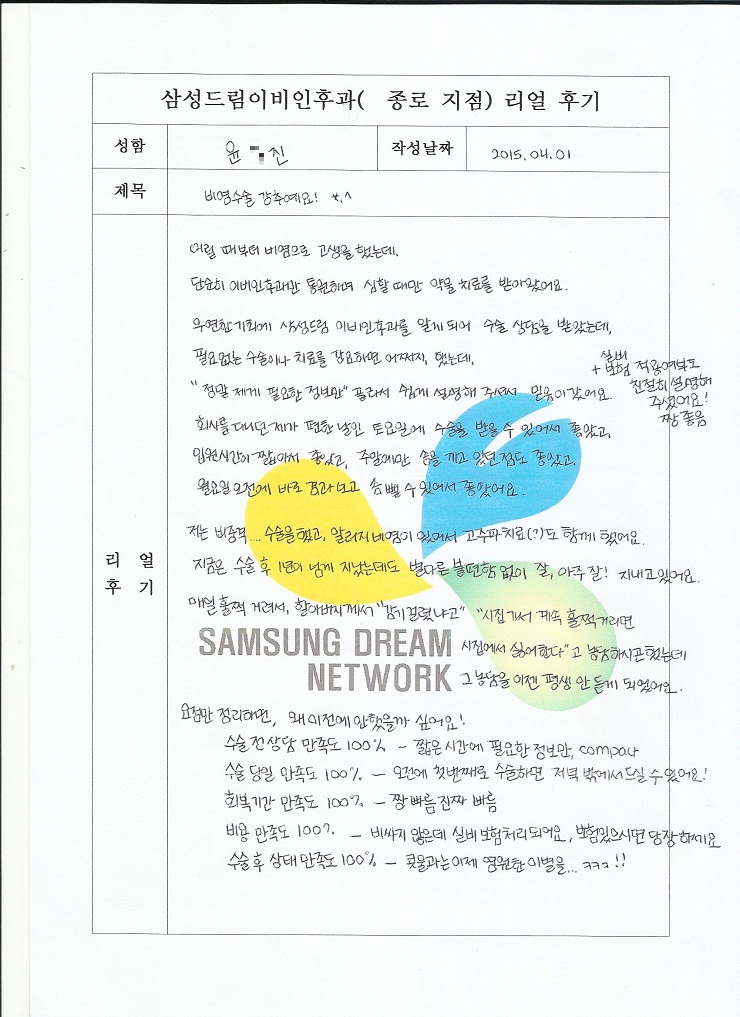 삼성드림이비인후과( 종로 지점) 리얼 후기
성함 윤 진 작성날짜 2015.04.01
제목 비염수술 강추예요! *.^
어릴 때부터 비염으로 고생을 했는데,
단순히 이비인후과만 통원하며 심할 때만 약물치료를 받아왔어요.
우연한 기회에 삼성드림 이비인후과를 알게 되어 수술 상담을 받았는데,
필요없는 수술이나 치료를 강요하면 어쩌지, 했는데,
"정말 제게 필요한 정보만" 골라서 쉽게 설명해 주셔서 믿음이 갔어요.
+ 실비보험 적용여부도
친절히 설명해
주셨어요!
짱 좋음
회사를 다니던 제가 편한 날인 토요일에 수술을 받을 수 있어서 좋았고,
입원시간이 짧아서 좋았고, 주말에만 솜을 끼고 있던 점도 좋았고,
월요일 오전에 바로 경과보고 솜 뺄 수 있어서 좋았어요.
리 얼
후 기
저는 비중격.... 수술을 했고, 알러지 비염이 있어서 고주파치료(?)도 함께 했어요.
지금은 수술 후 1년이 넘게 지났는데도 별다른 불편함 없이 잘, 아주 잘! 지내고 있어요.
매일 훌쩍 거려서, 할아버지께서 "감기 걸렸냐고" "시집가서 계속 훌쩍거리면
시집에서 싫어한다"고 농담하시곤 했는데
그 농담을 이젠 평생 안 듣게 되었어요.
SAMSUNG DREAM
NETWORK
요점만 정리하면, 왜 이전에 안했을까 싶어요!
수술 전 상담 만족도 100% - 짧은 시간에 필요한 정보만, compact
수술 당일 만족도 100% - 오전에 첫번째로 수술하면 저녁 밖에서 드실 수 있어요!
회복기간 만족도 100% - 짱 빠름 진짜 빠름
비용 만족도 100% - 비싸지 않은데 실비보험처리 되어요, 보험있으시면 당장 하세요
수술 후 상태 만족도 100% - 콧물과는 이제 영원한 이별을... ㅋㅋㅋ!!